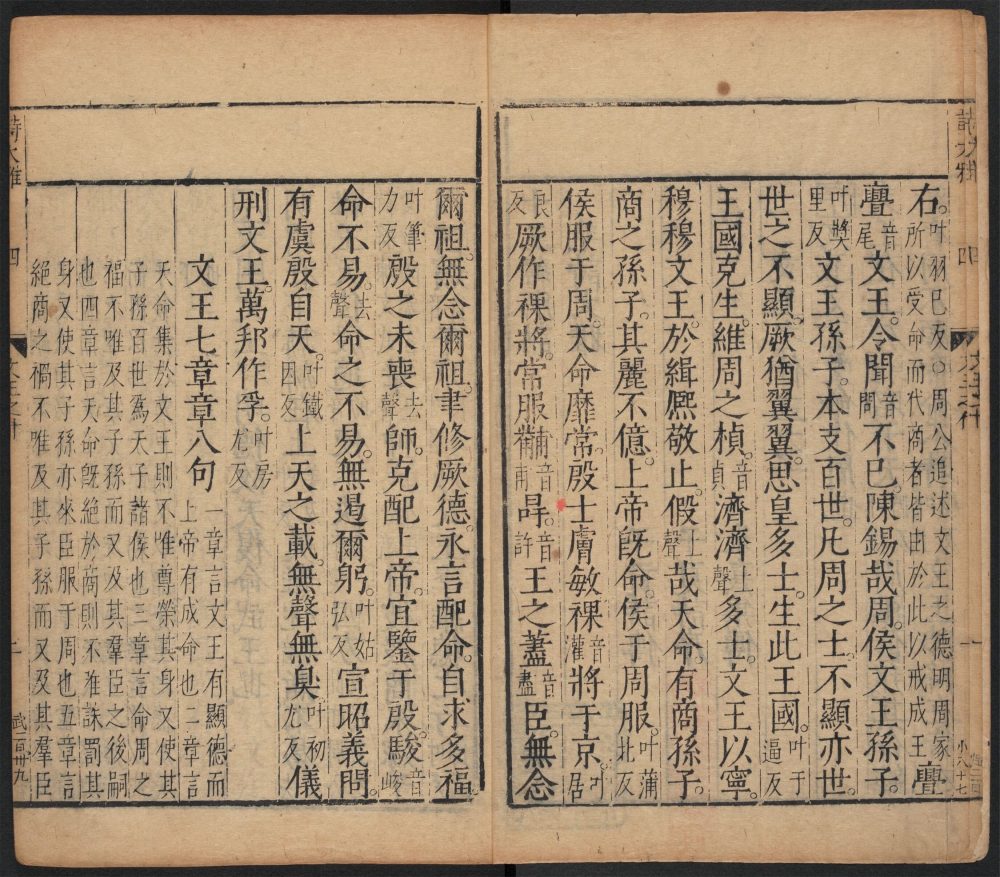 詩大雅 四 文王之什 一
右。叶羽已反○周公追述文王之德明周家所以受命而代商者皆由於此以戒成王亹
亹音尾文王。令聞音問不已。陳錫哉周。侯文王孫子。
叶獎里反文王孫子。本支百世。凡周之士。不顯亦世。
世之不顯。厥猶翼翼。思皇多士。生此王國。叶于逼反
王國克生。維周之楨。音貞濟濟上聲多士。文王以寧。
穆穆文王。於緝熈敬止。假上聲哉天命。有商孫子。
商之孫子。其麗不億。上帝旣命。侯于周服。叶蒲北反
侯服于周。天命靡常。殷士膚敏。祼音灌將于京。叶居
良反厥作祼將。常服黼音甫冔。音許王之藎音盡臣。無念
爾祖。無念爾祖。聿修厥德。永言配命。自求多福。
叶筆力反殷之未喪去聲師。克配上帝。宜鑒于殷。駿音峻
命不易。去聲命之不易。無遏爾躬。叶姑弘反宣昭義問。
有虞殷自天。叶鐵因反上天之載。無聲無臭。叶初尤反儀
刑文王。萬邦作孚。叶房尤反
文王七章章八句 一章言文王有顯德而上帝有成命也二章言
天命集於文王則不惟尊榮其身又使其
子孫百世爲天子諸侯也三章言命周之
福不唯及其子孫而又及其羣臣之後嗣
也四章言天命旣絕於商則不唯誅罰其
身又使其子孫亦來臣服于周也五章言
絕商之禍不唯及其子孫而又及其羣臣
詩大雅 四 文王之什 二